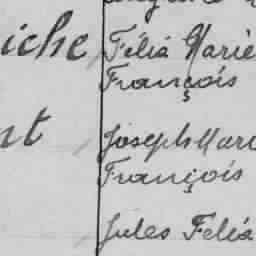 iche Félia Marie
François
nt Joseph Mari
François
Jules Félia